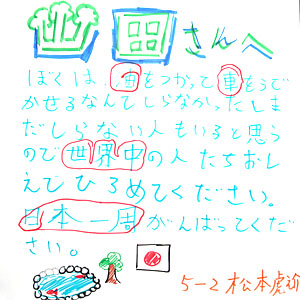 山田さんへ
ぼくは、油をつかって車をうご
かせるなんてしらなかったしま
だしらない人もいると思う
ので世界中の人たちおし
えてひろめてください。
日本一周がんばってくだ
さい。
5-2 松本虎